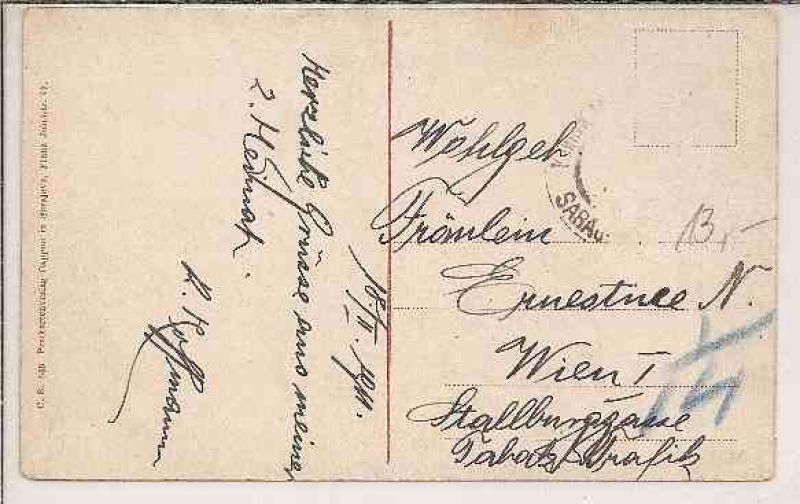 Herzliche Grüsse aus meiner
2. Heimat.
K. Hoffmann
18/II. 1911.
Wohlgeb.
Fräulein
Ernestine N.
Wien I
Stallburggasse
Tabak-Trafik
SARAJ
13,-